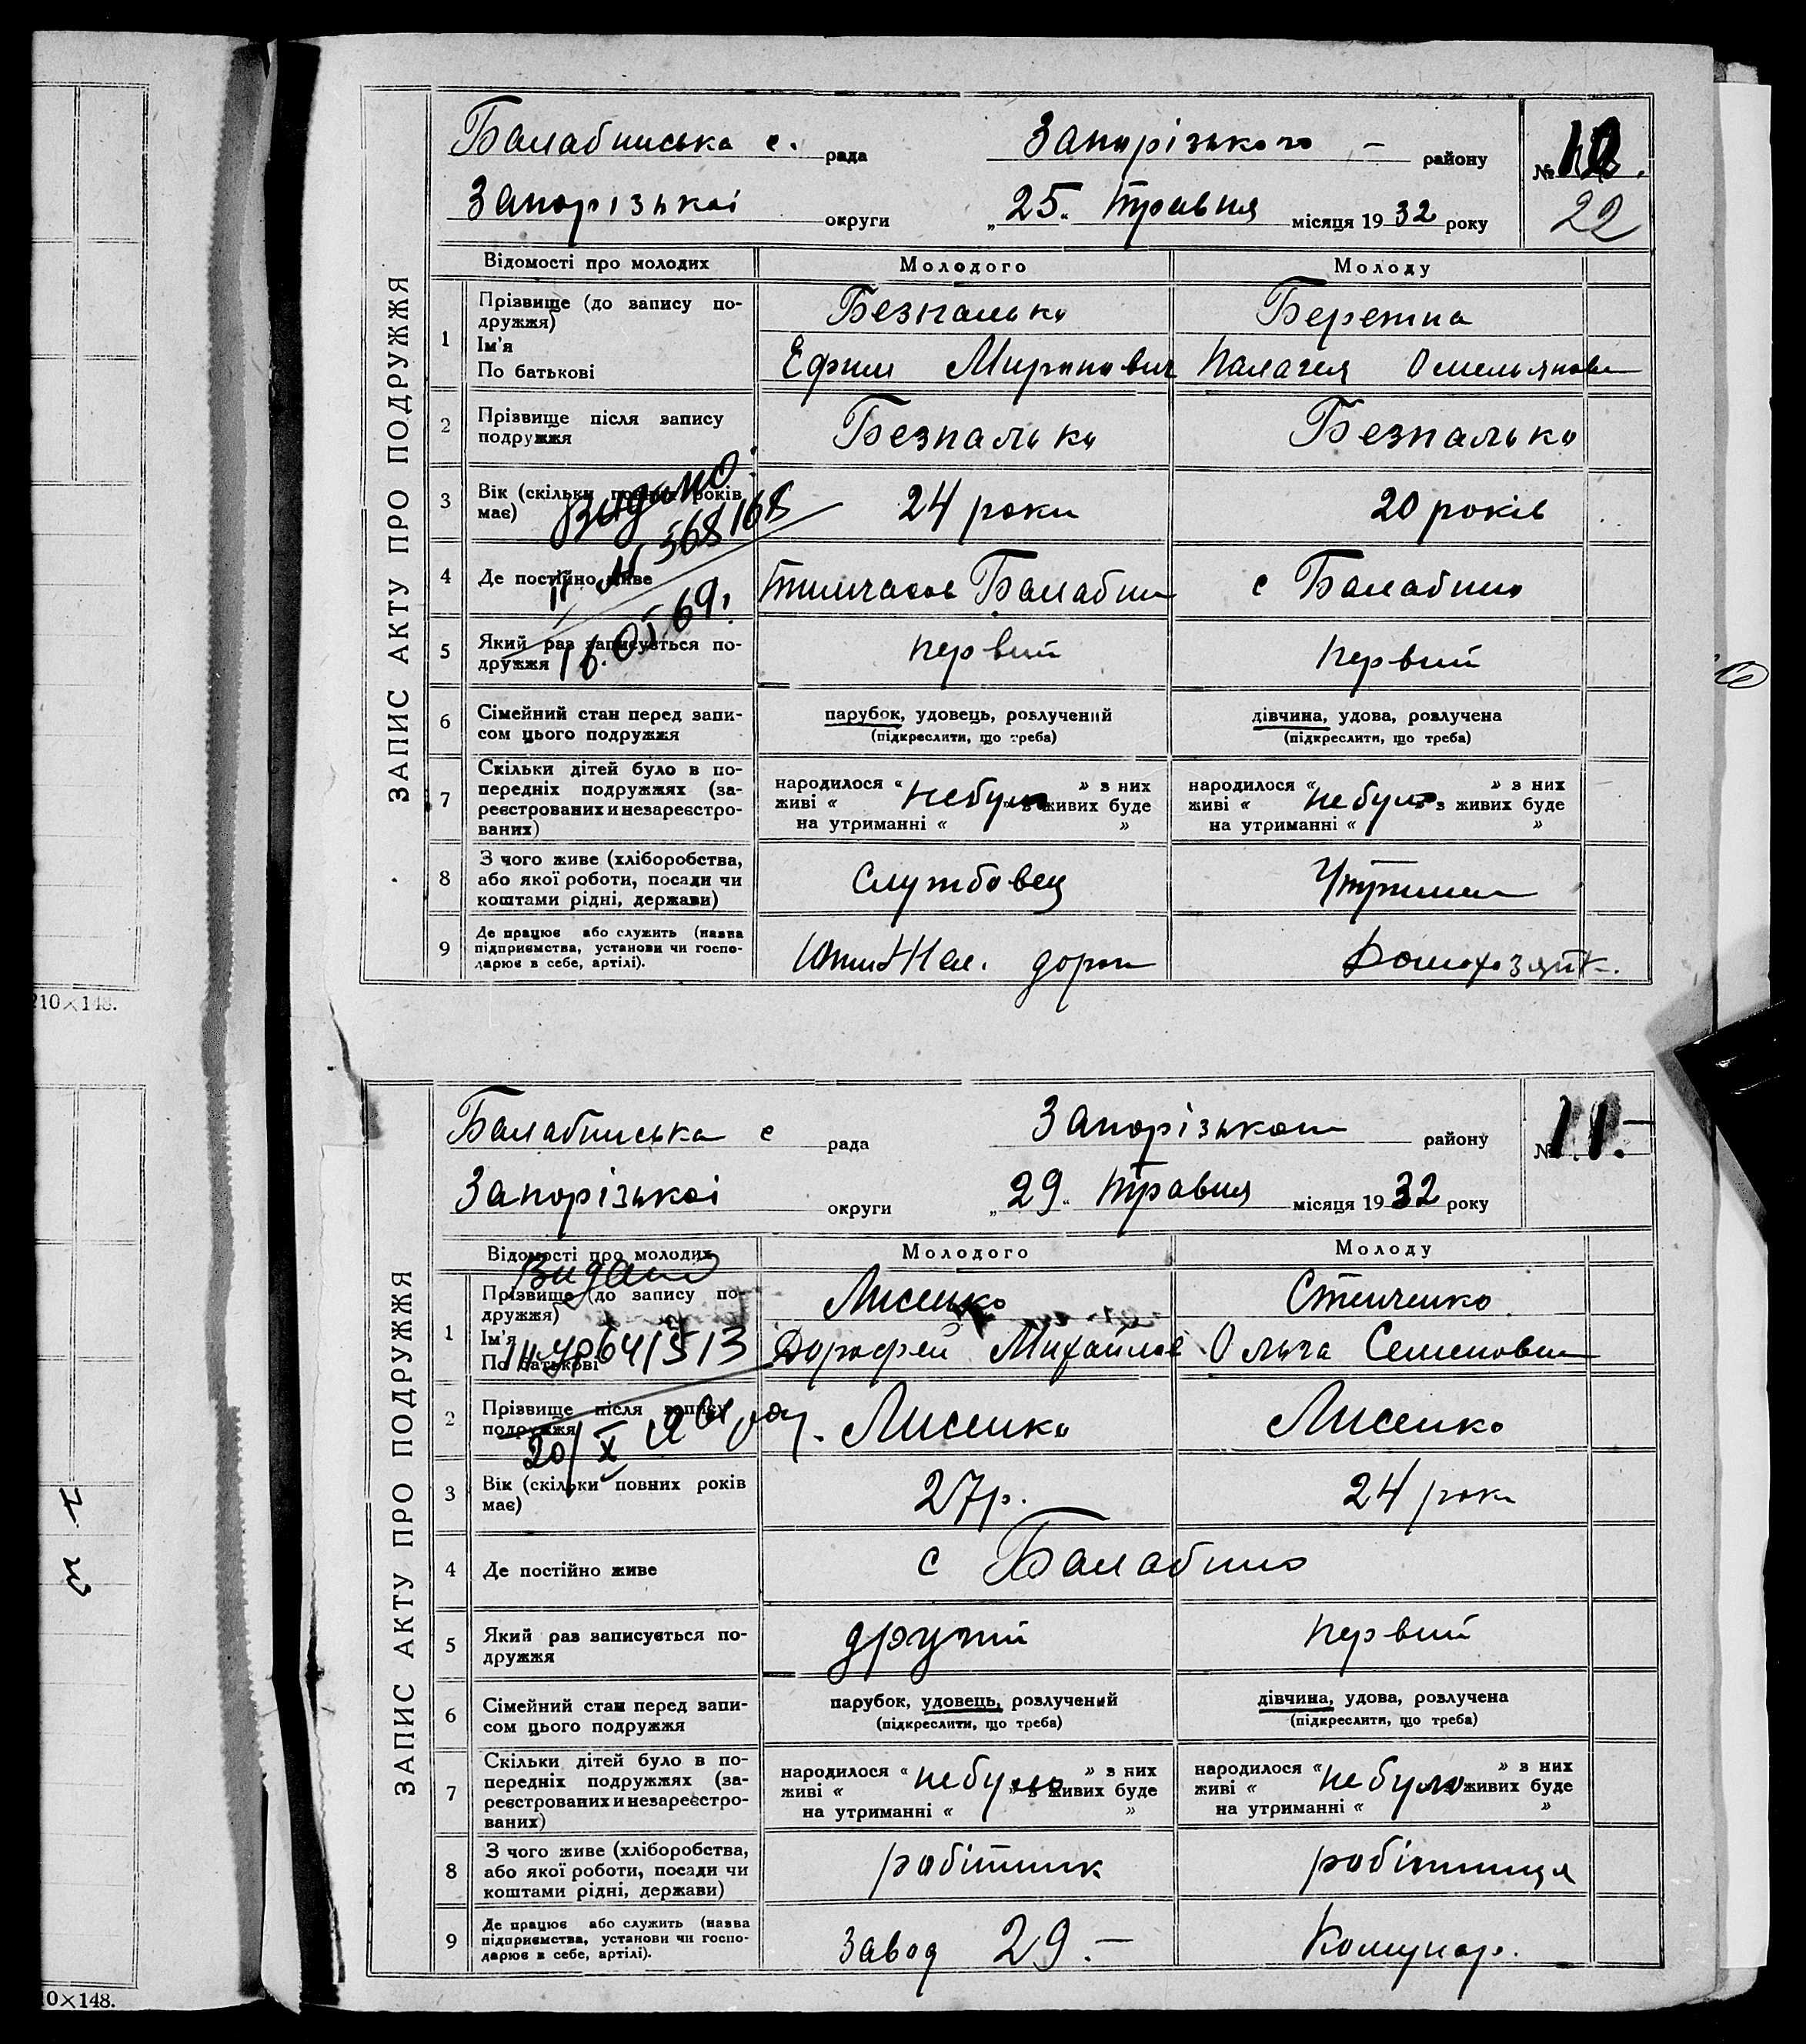 Балабинська с. рада Запорізького – району № 10.
Запорізької округи „25“ травня місяця 1932 року 22
ЗАПИС АКТУ ПРО ПОДРУЖЖЯ
Відомості про молодих Молодого Молоду
1 Прізвище (до запису по-
дружжя) Безпалько Бережна
Ім'я
По батькові Ефим Миронович Палагея Омельянов
2 Прізвище після запису
подружжя Безпалько Безпалько
3 Вік (скільки повних років
має) 24 роки 20 років
Видано
568168
4 Де постійно живе тимчасов Балабин с Балабино
16.
69.
5 Який раз записується по-
дружжя первий первий
6 Сімейний стан перед запи-
сом цього подружжя парубок, удовець, розлучений
(підкреслити, що треба) дівчина, удова, розлучена
(підкреслити, що треба)
7 Скільки дітей було в по-
передніх подружжях (за-
реєстрованих и незареєстро-
ваних) народилося “ не було ” в них
живі “ ” в живих буде
на утриманні “ ” народилося “ не було ” в них
живі “ ” в живих буде
на утриманні “ ”
8 З чого живе (хліборобства,
або якої роботи, посади чи
коштами рідні, держави) службовец
9 Де працює або служить (назва
підприємства, установи чи госпо-
дарює в себе, артілі). дорог
210×148.
Балабинська с рада Запорізького району № 11.–
Запорізької округи „29“ травня місяця 1932 року
ЗАПИС АКТУ ПРО ПОДРУЖЖЯ
Відомості про молодих Молодого Молоду
Видано
1 Прізвище (до запису по-
дружжя) Лисенко Стенченко
Ім'я
По батькові Дорофей Михайлов Ольга Семеновна
2 Прізвище після запису
подружжя Лисенко Лисенко
20/X
3 Вік (скільки повних років
має) 27 р. 24 роки
4 Де постійно живе с Балабино
5 Який раз записується по-
дружжя другий первий
6 Сімейний стан перед запи-
сом цього подружжя парубок, удовець, розлучений
(підкреслити, що треба) дівчина, удова, розлучена
(підкреслити, що треба)
7 Скільки дітей було в по-
передніх подружжях (за-
реєстрованих и незареєстро-
ваних) народилося “ не було ” в них
живі “ ” в живих буде
на утриманні “ ” народилося “ не було ” в них
живі “ живих буде
на утриманні “ ”
8 З чого живе (хліборобства,
або якої роботи, посади чи
коштами рідні, держави) робітник робітниця
9 Де працює або служить (назва
підприємства, установи чи госпо-
дарює в себе, артілі). завод 29.– Комунар.
0×148.